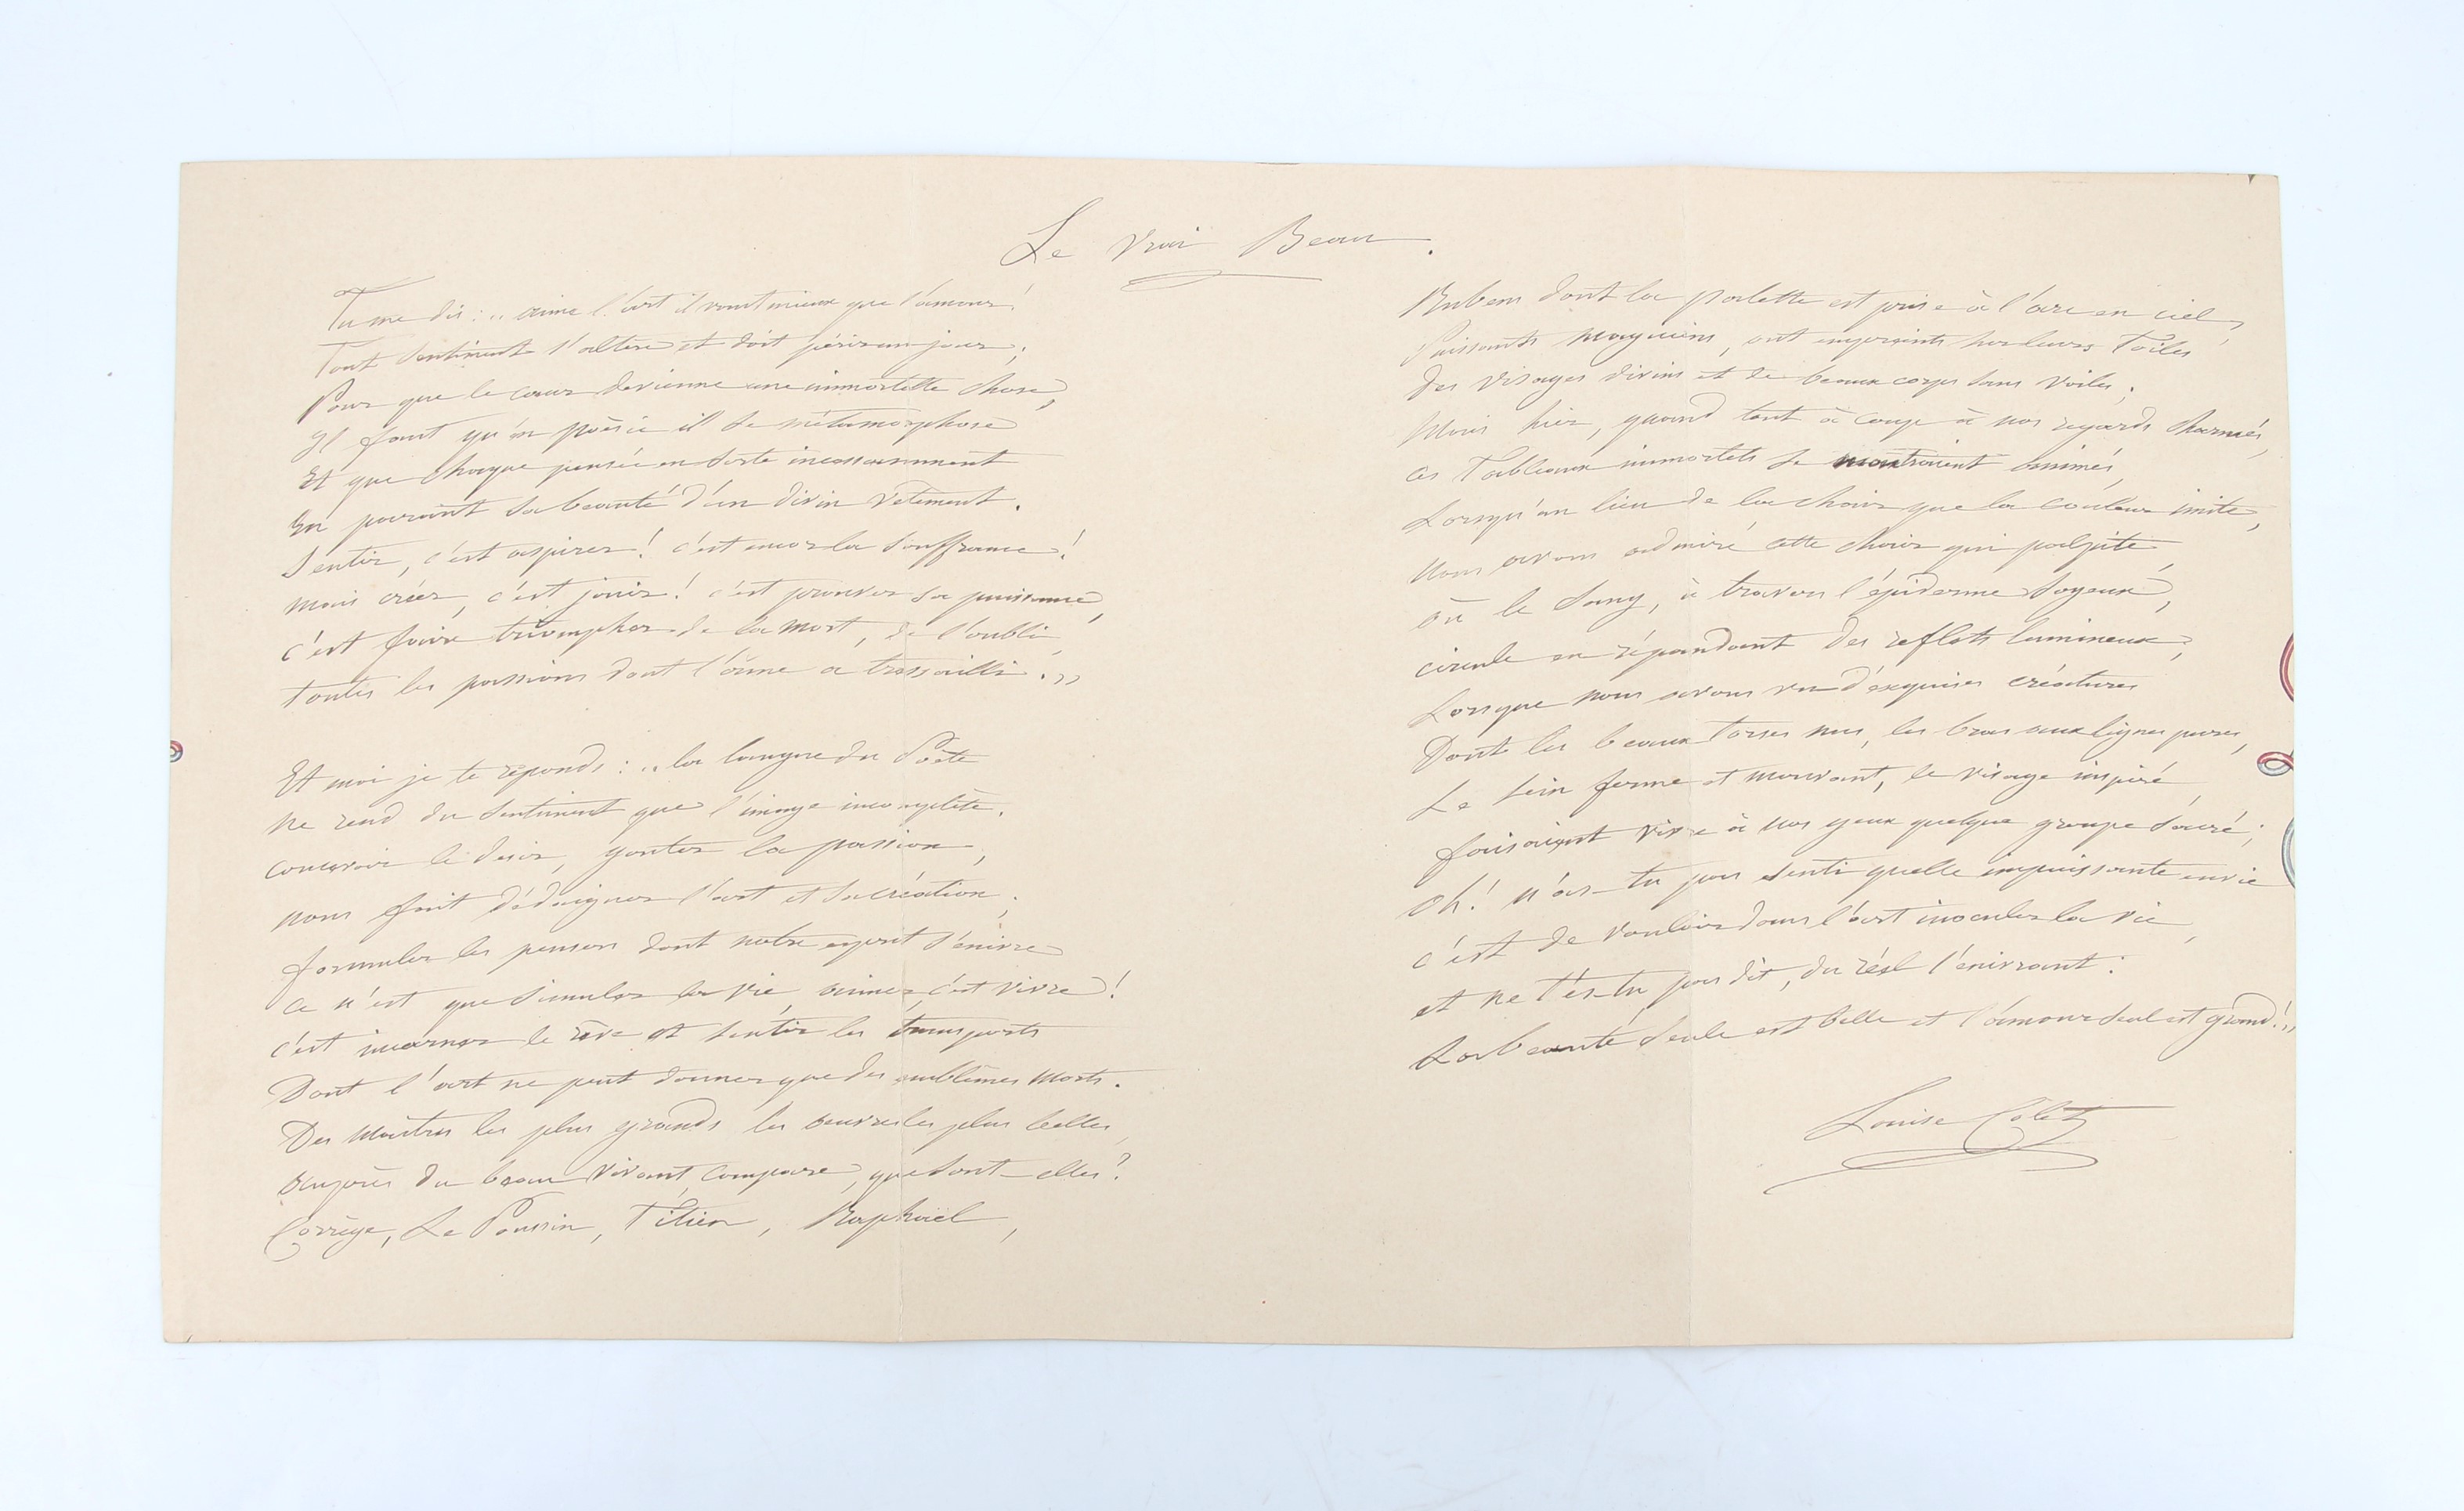 Le Vrai Beau.
Tu me dis : „ aime l'art il vaut mieux que l'amour !
Tout sentiment s'altère et doit périr un jour ;
Pour que le cœur devienne une immortelle chose,
Il faut qu'en poésie il se métamorphose
Et que chaque pensée en sorte incessamment
En parant sa beauté d'un divin vêtement.
Sentir, c'est aspirer ! c'est encor la souffrance !
Mais créer, c'est jouir ! c'est prouver sa puissance,
c'est faire triompher de la mort, de l'oubli,
toutes les passions dont l'âme a tressailli. „
Et moi je te réponds : „ la langue du Poète
ne rend du sentiment que l'image incomplète.
concevoir le désir, goûter la passion,
nous fait dédaigner l'art et sa création ;
formuler les pensers dont notre esprit s'énivre
ce n'est que simuler la vie, aimer, c'est vivre !
c'est incarner le rêve et sentir les transports
Dont l'art ne peut donner que des emblêmes morts.
Des Maîtres les plus grands les œuvres les plus belles,
auprès du beau vivant, compare, que sont-elles ?
Corrège, Le Poussin, Titien, Raphaël,
Rubens dont la palette est prise à l'arc en ciel,
Puissants magiciens, ont empreints sur leurs Toiles
des visages divins et de beaux corps sans voiles.
Mais hier, quand tout à coup à nos regards charmés,
ces Tableaux immortels se montraient animés,
Lorsqu'au lieu de la chair que la couleur imite,
nous avons admiré cette chair qui palpite,
où le sang, à travers l'épiderme soyeux,
circule en répandant des reflets lumineux ;
Lorsque nous avons vu d'exquises créatures
Dont les beaux torses nus, les bras aux lignes pures,
Le sein ferme et mouvant, le visage inspiré,
faisaient vivre à nos yeux quelque groupe sacré ;
Oh ! n'as-tu pas senti quelle impuissante envie
c'est de vouloir dans l'art inoculer la vie,
et ne t'es-tu pas dit, du réel t'enivrant :
La beauté seule est belle et l'amour seul est grand ! „
Louise Colet